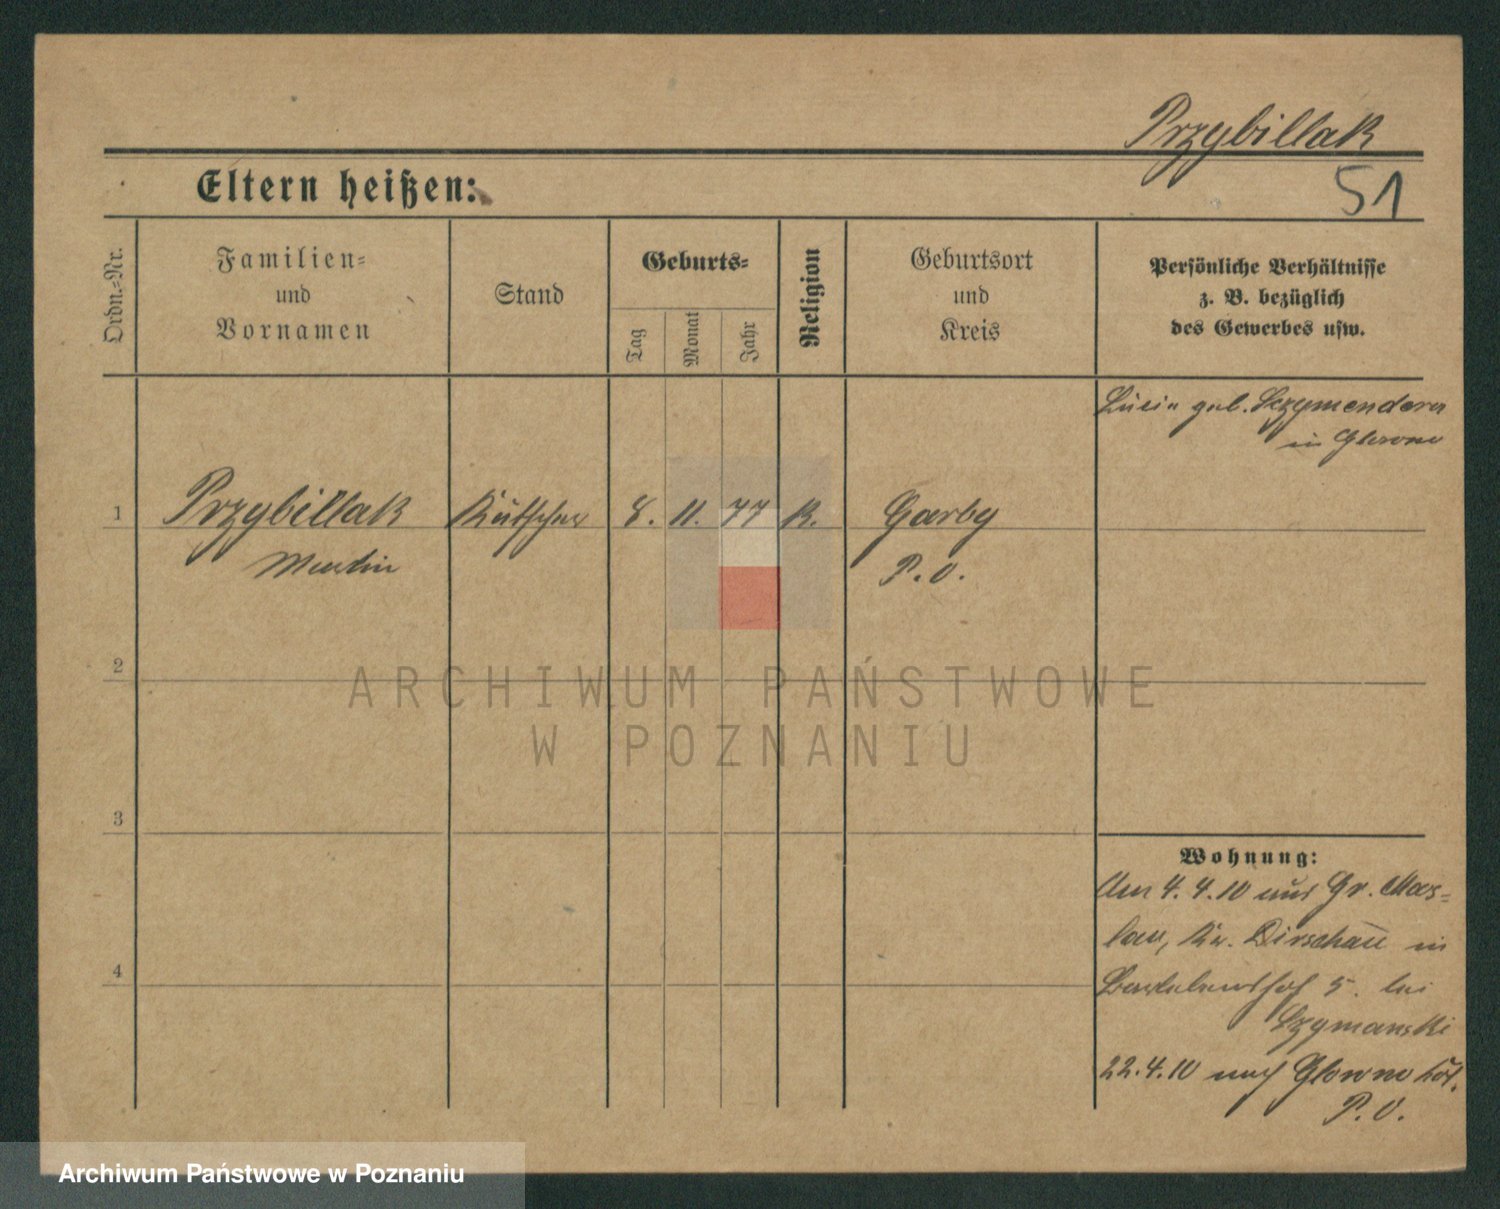 Przybillak
51
Eltern heißen:
Ordn.-Nr.
Familien-
und
Vornamen
Stand
Geburts-
Tag
Monat
Jahr
Religion
Geburtsort
und
Kreis
Persönliche Verhältnisse
z. B. bezüglich
des Gewerbes usw.
geb. Szymendera
in Glowno
1
Przybillak Kutscher 8. 11. 77 K. Garby
Martin P. O.
2
ARCHIWUM PAŃSTWOWE
W POZNANIU
3
Wohnung:
Am 4. 4. 10 aus Gr. Mas-
lau, Kr. Dirschau in
4
5. bei
Szymanski
22.4.10 nach Glowno
P. O.
Archiwum Państwowe w Poznaniu